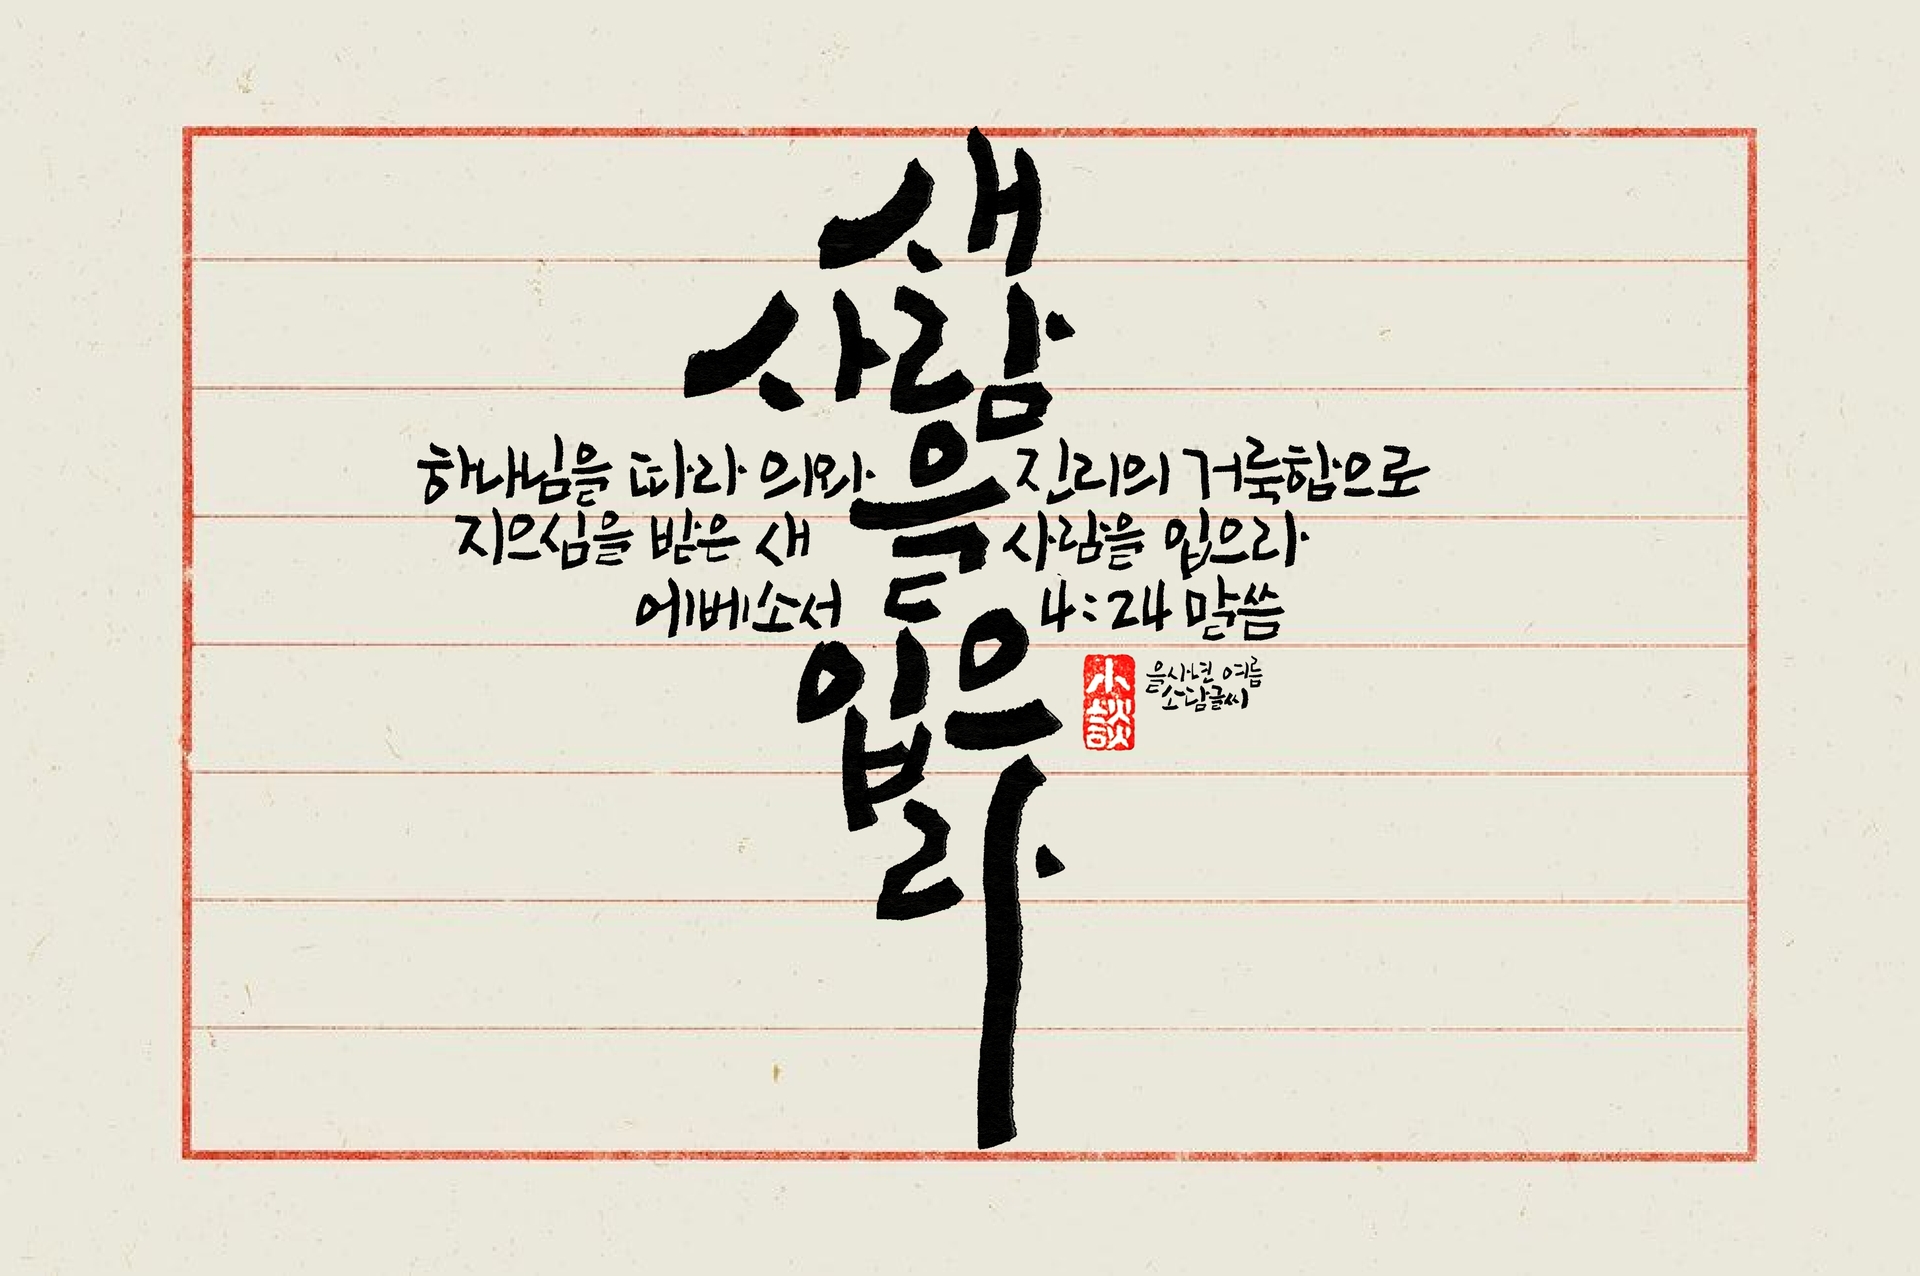 새
사람
을
입으
라
하나님을 따라 의와 진리의 거룩함으로
지으심을 받은 새 사람을 입으라
에베소서 4:24 말씀
小談
을사년 여름
소담글씨